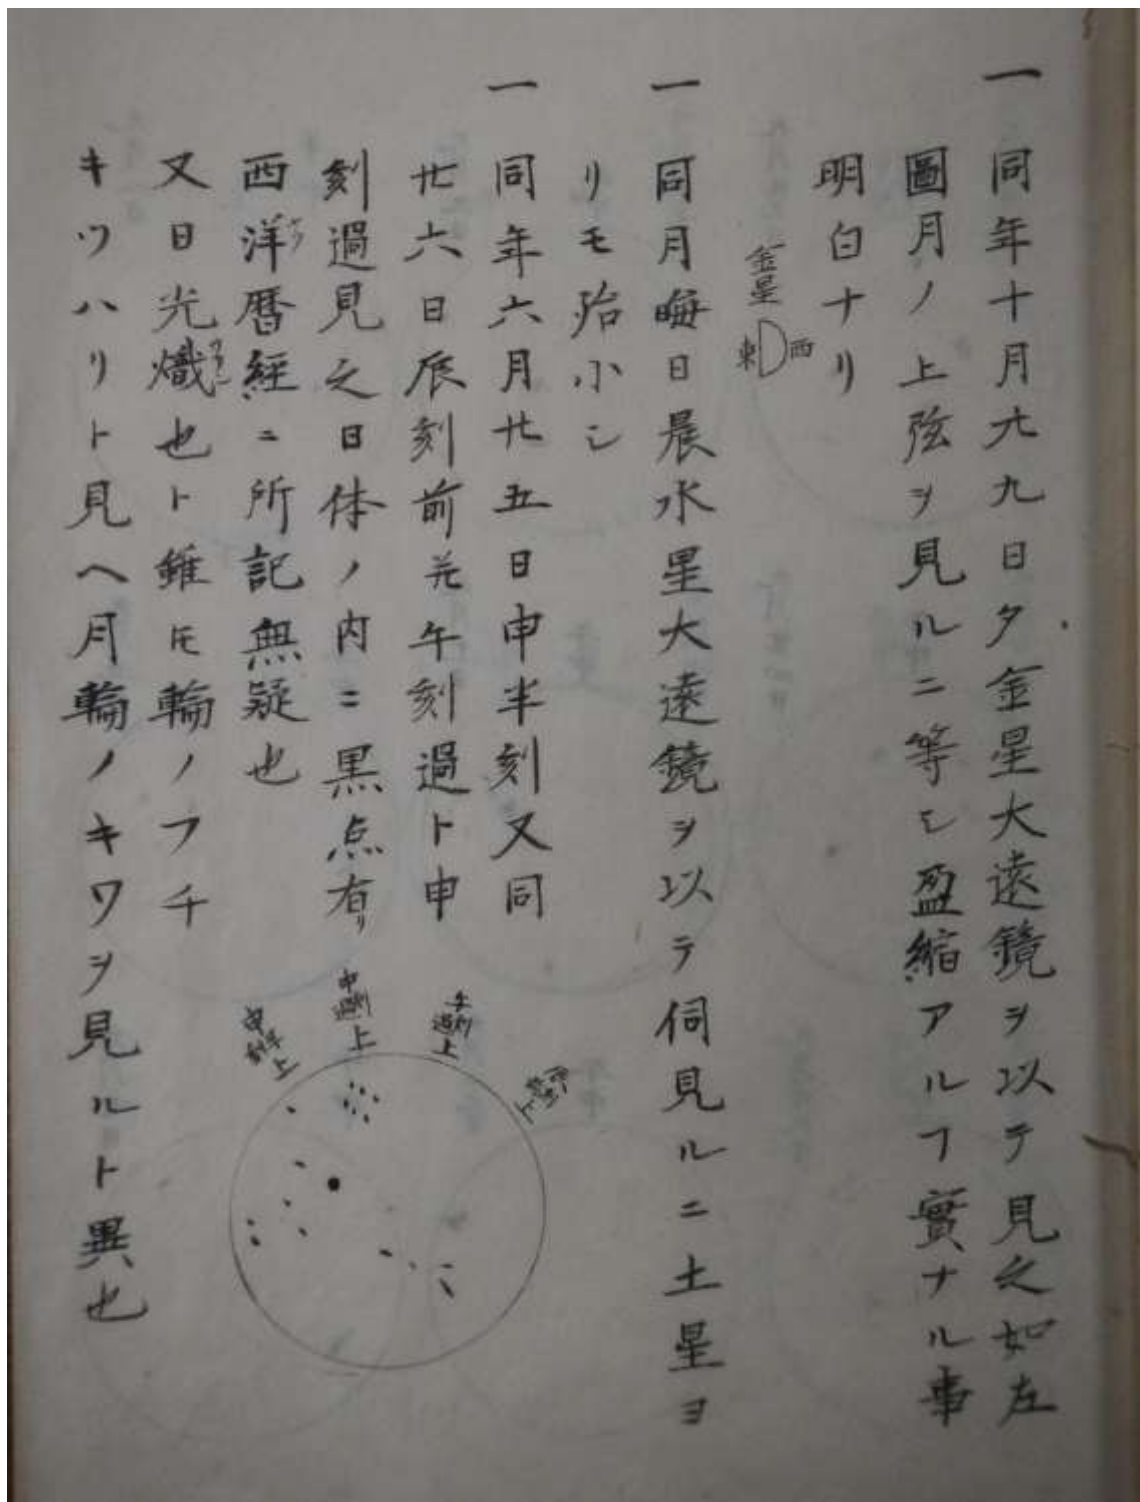 一 同年十月廿九日夕金星大遠鏡ヲ以テ見之如左
圖月ノ上弦ヲ見ルニ等シ盈縮アルヿ實ナル事
明白ナリ
金星
東 西
一 同月晦日晨水星大遠鏡ヲ以テ伺見ルニ土星ヨ
リモ殆小シ
一 同年六月廿五日申半刻又同
廿六日辰刻前并午刻過ト申
刻過見之日体ノ内ニ黒点有リ
西洋暦経ニ所記無疑也
又日光熾也ト雖𪜈輪ノフチ
キツハリト見ヘ月輪ノキワヲ見ルト異也
午刻過上
申刻過上
申半刻上